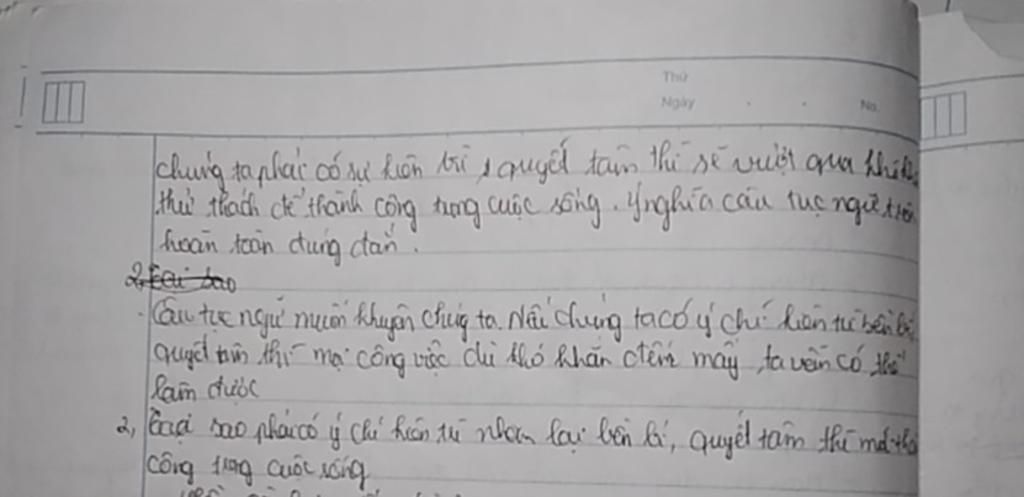 Thứ
Ngày No.
chúng ta phải có sự kiên trì, quyết tâm thì sẽ vượt qua khó
thử thách để thành công trong cuộc sống. Ý nghĩa câu tục ngữ trên
hoàn toàn đúng đắn.
2, Tại sao
- Câu tục ngữ muốn khuyên chúng ta. Nếu chúng ta có ý chí kiên trì bền bỉ
quyết tâm thì mọi công việc dù khó khăn đến mấy, ta vẫn có thể
làm được
2, Tại sao phải có ý chí kiên trì nhẫn lại bền bỉ, quyết tâm thì mới
công trong cuộc sống